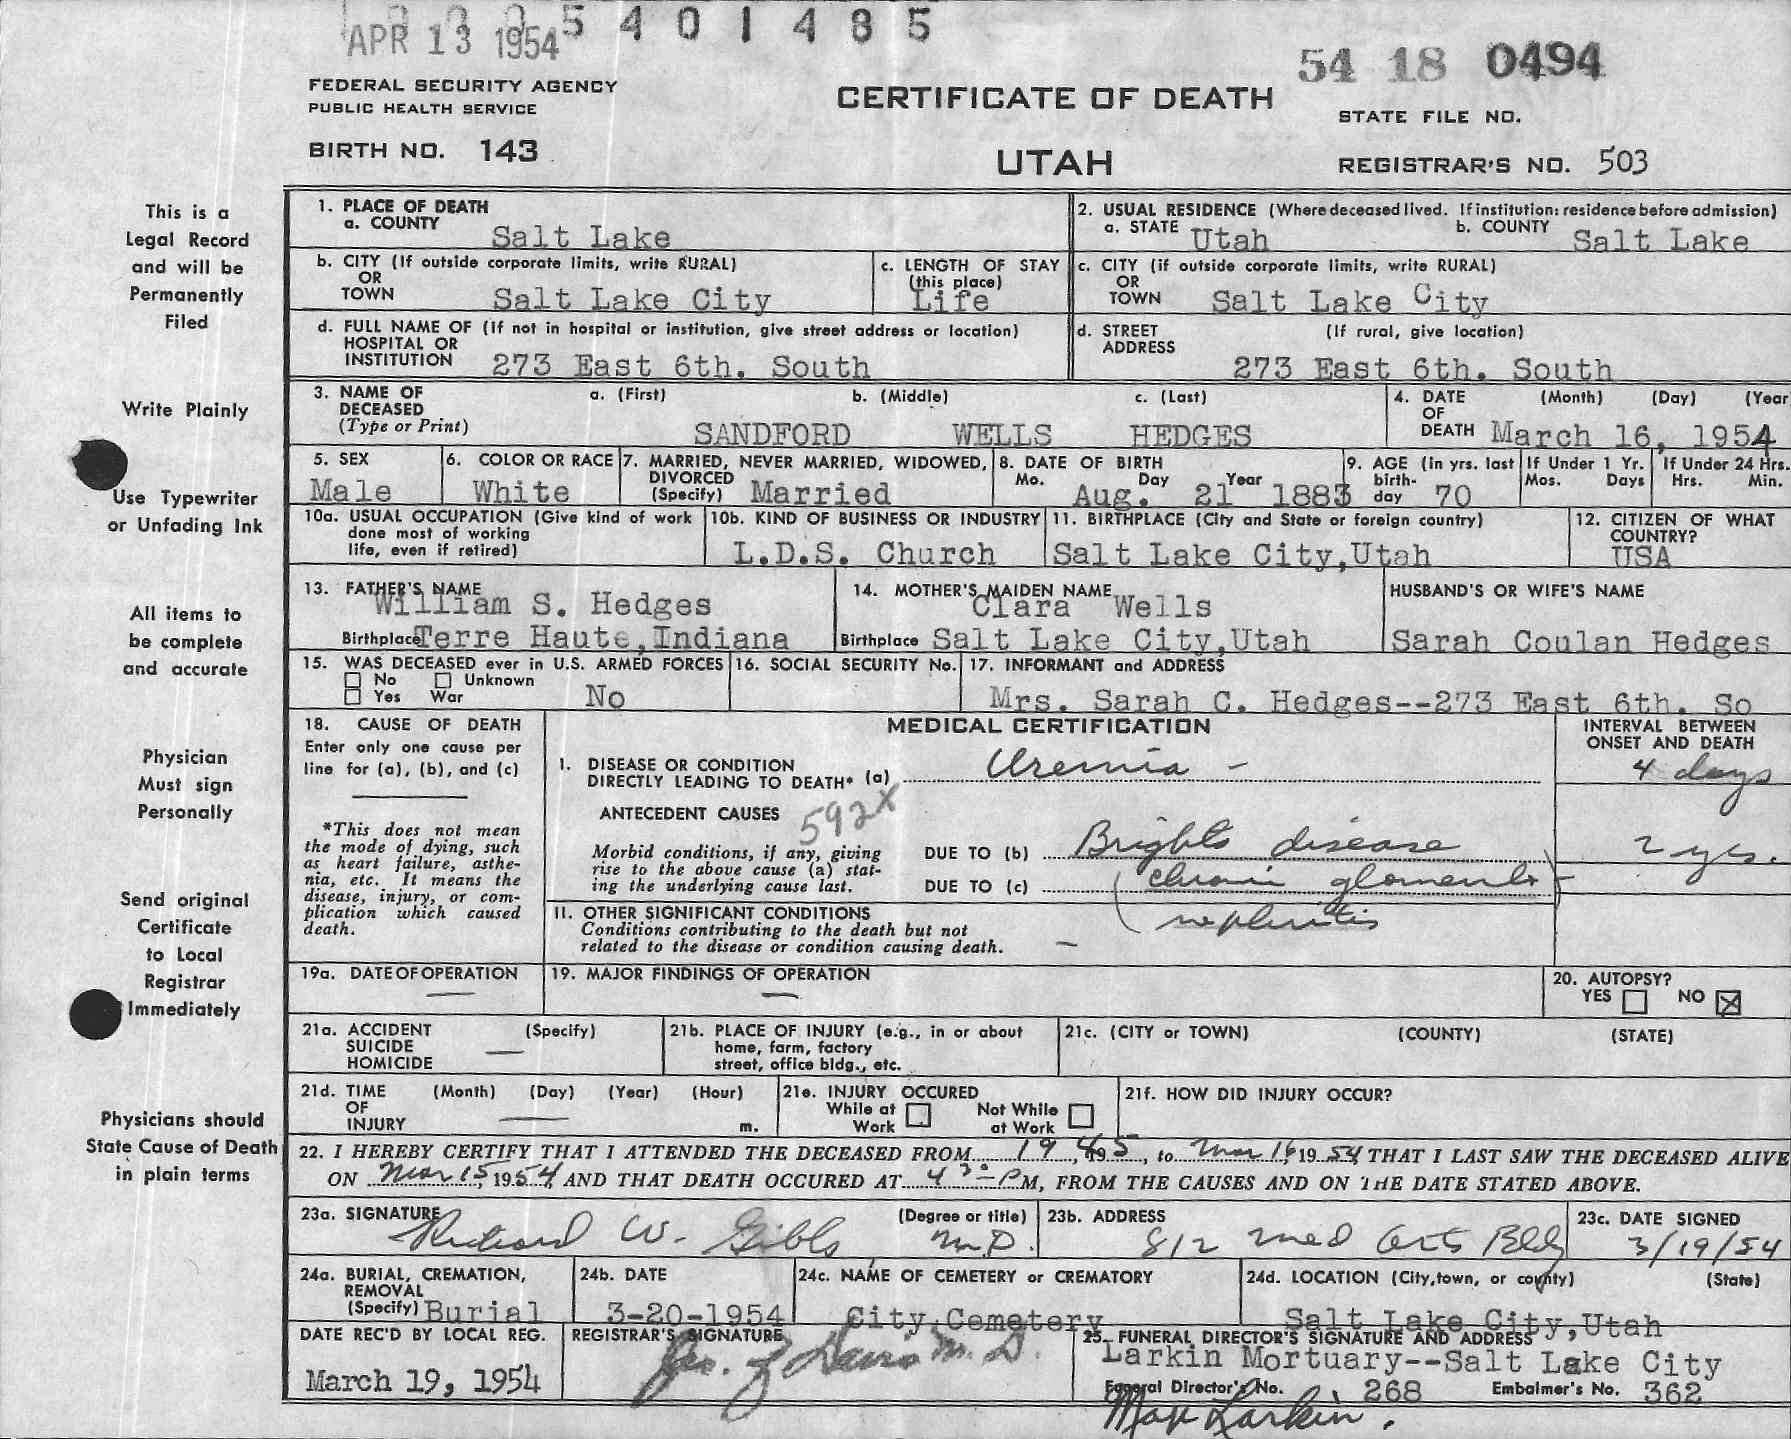 APR 13 1954
5 4 0 1 4 8 5
54 18 0494
FEDERAL SECURITY AGENCY
PUBLIC HEALTH SERVICE
CERTIFICATE OF DEATH
STATE FILE NO.
BIRTH NO. 143
UTAH
REGISTRAR'S NO. 503
This is a
Legal Record
and will be
Permanently
Filed
Write Plainly
Use Typewriter
or Unfading Ink
All items to
be complete
and accurate
Physician
Must sign
Personally
Send original
Certificate
to Local
Registrar
Immediately
Physicians should
State Cause of Death
in plain terms
1. PLACE OF DEATH
a. COUNTY Salt Lake
2. USUAL RESIDENCE (Where deceased lived. If institution: residence before admission)
a. STATE Utah b. COUNTY Salt Lake
b. CITY (If outside corporate limits, write RURAL)
OR
TOWN Salt Lake City
c. LENGTH OF STAY
(this place)
Life
c. CITY (if outside corporate limits, write RURAL)
OR
TOWN Salt Lake City
d. FULL NAME OF (If not in hospital or institution, give street address or location)
HOSPITAL OR
INSTITUTION 273 East 6th. South
d. STREET (If rural, give location)
ADDRESS
273 East 6th. South
3. NAME OF a. (First) b. (Middle) c. (Last)
DECEASED
(Type or Print) SANDFORD WELLS HEDGES
4. DATE (Month) (Day) (Year
OF
DEATH March 16, 1954
5. SEX
Male
6. COLOR OR RACE
White
7. MARRIED, NEVER MARRIED, WIDOWED,
DIVORCED
(Specify) Married
8. DATE OF BIRTH
Mo. Day Year
Aug. 21 1883
9. AGE (in yrs. last
birth-
day 70
If Under 1 Yr.
Mos. Days
If Under 24 Hrs.
Hrs. Min.
10a. USUAL OCCUPATION (Give kind of work
done most of working
life, even if retired)
10b. KIND OF BUSINESS OR INDUSTRY
L.D.S. Church
11. BIRTHPLACE (City and State or foreign country)
Salt Lake City,Utah
12. CITIZEN OF WHAT
COUNTRY?
USA
13. FATHER'S NAME
William S. Hedges
Birthplace Terre Haute,Indiana
14. MOTHER'S MAIDEN NAME
Clara Wells
Birthplace Salt Lake City,Utah
HUSBAND'S OR WIFE'S NAME
Sarah Coulan Hedges
15. WAS DECEASED ever in U.S. ARMED FORCES
No Unknown
Yes War No
16. SOCIAL SECURITY No.
17. INFORMANT and ADDRESS
Mrs. Sarah C. Hedges--273 East 6th. So
18. CAUSE OF DEATH
Enter only one cause per
line for (a), (b), and (c)
*This does not mean
the mode of dying, such
as heart failure, asthe-
nia, etc. It means the
disease, injury, or com-
plication which caused
death.
MEDICAL CERTIFICATION
INTERVAL BETWEEN
ONSET AND DEATH
I. DISEASE OR CONDITION
DIRECTLY LEADING TO DEATH* (a) Uremia - 4 days
ANTECEDENT CAUSES
592X
Morbid conditions, if any, giving
rise to the above cause (a) stat-
ing the underlying cause last.
DUE TO (b) Brights disease 2 yrs.
DUE TO (c) (chronic glomerulo-
nephritis
II. OTHER SIGNIFICANT CONDITIONS
Conditions contributing to the death but not
related to the disease or condition causing death. —
19a. DATE OF OPERATION
—
19. MAJOR FINDINGS OF OPERATION
—
20. AUTOPSY?
YES NO X
21a. ACCIDENT (Specify)
SUICIDE —
HOMICIDE
21b. PLACE OF INJURY (e.g., in or about
home, farm, factory
street, office bldg., etc.
21c. (CITY or TOWN) (COUNTY) (STATE)
21d. TIME (Month) (Day) (Year) (Hour)
OF
INJURY — m.
21e. INJURY OCCURED
While at Not While
Work at Work
21f. HOW DID INJURY OCCUR?
22. I HEREBY CERTIFY THAT I ATTENDED THE DECEASED FROM 1945, to Mar 16, 1954, THAT I LAST SAW THE DECEASED ALIVE
ON Mar 15, 1954, AND THAT DEATH OCCURED AT 4 30 PM, FROM THE CAUSES AND ON THE DATE STATED ABOVE.
23a. SIGNATURE (Degree or title)
Richard W. Gibbs M.D.
23b. ADDRESS
812 Med Arts Bldg
23c. DATE SIGNED
3/19/54
24a. BURIAL, CREMATION,
REMOVAL
(Specify) Burial
24b. DATE
3-20-1954
24c. NAME OF CEMETERY or CREMATORY
City Cemetery
24d. LOCATION (City,town, or county) (State)
Salt Lake City,Utah
DATE REC'D BY LOCAL REG.
March 19, 1954
REGISTRAR'S SIGNATURE
Davis M. D.
25. FUNERAL DIRECTOR'S SIGNATURE AND ADDRESS
Larkin Mortuary--Salt Lake City
Funeral Director's No. 268 Embalmer's No. 362
Max Larkin.